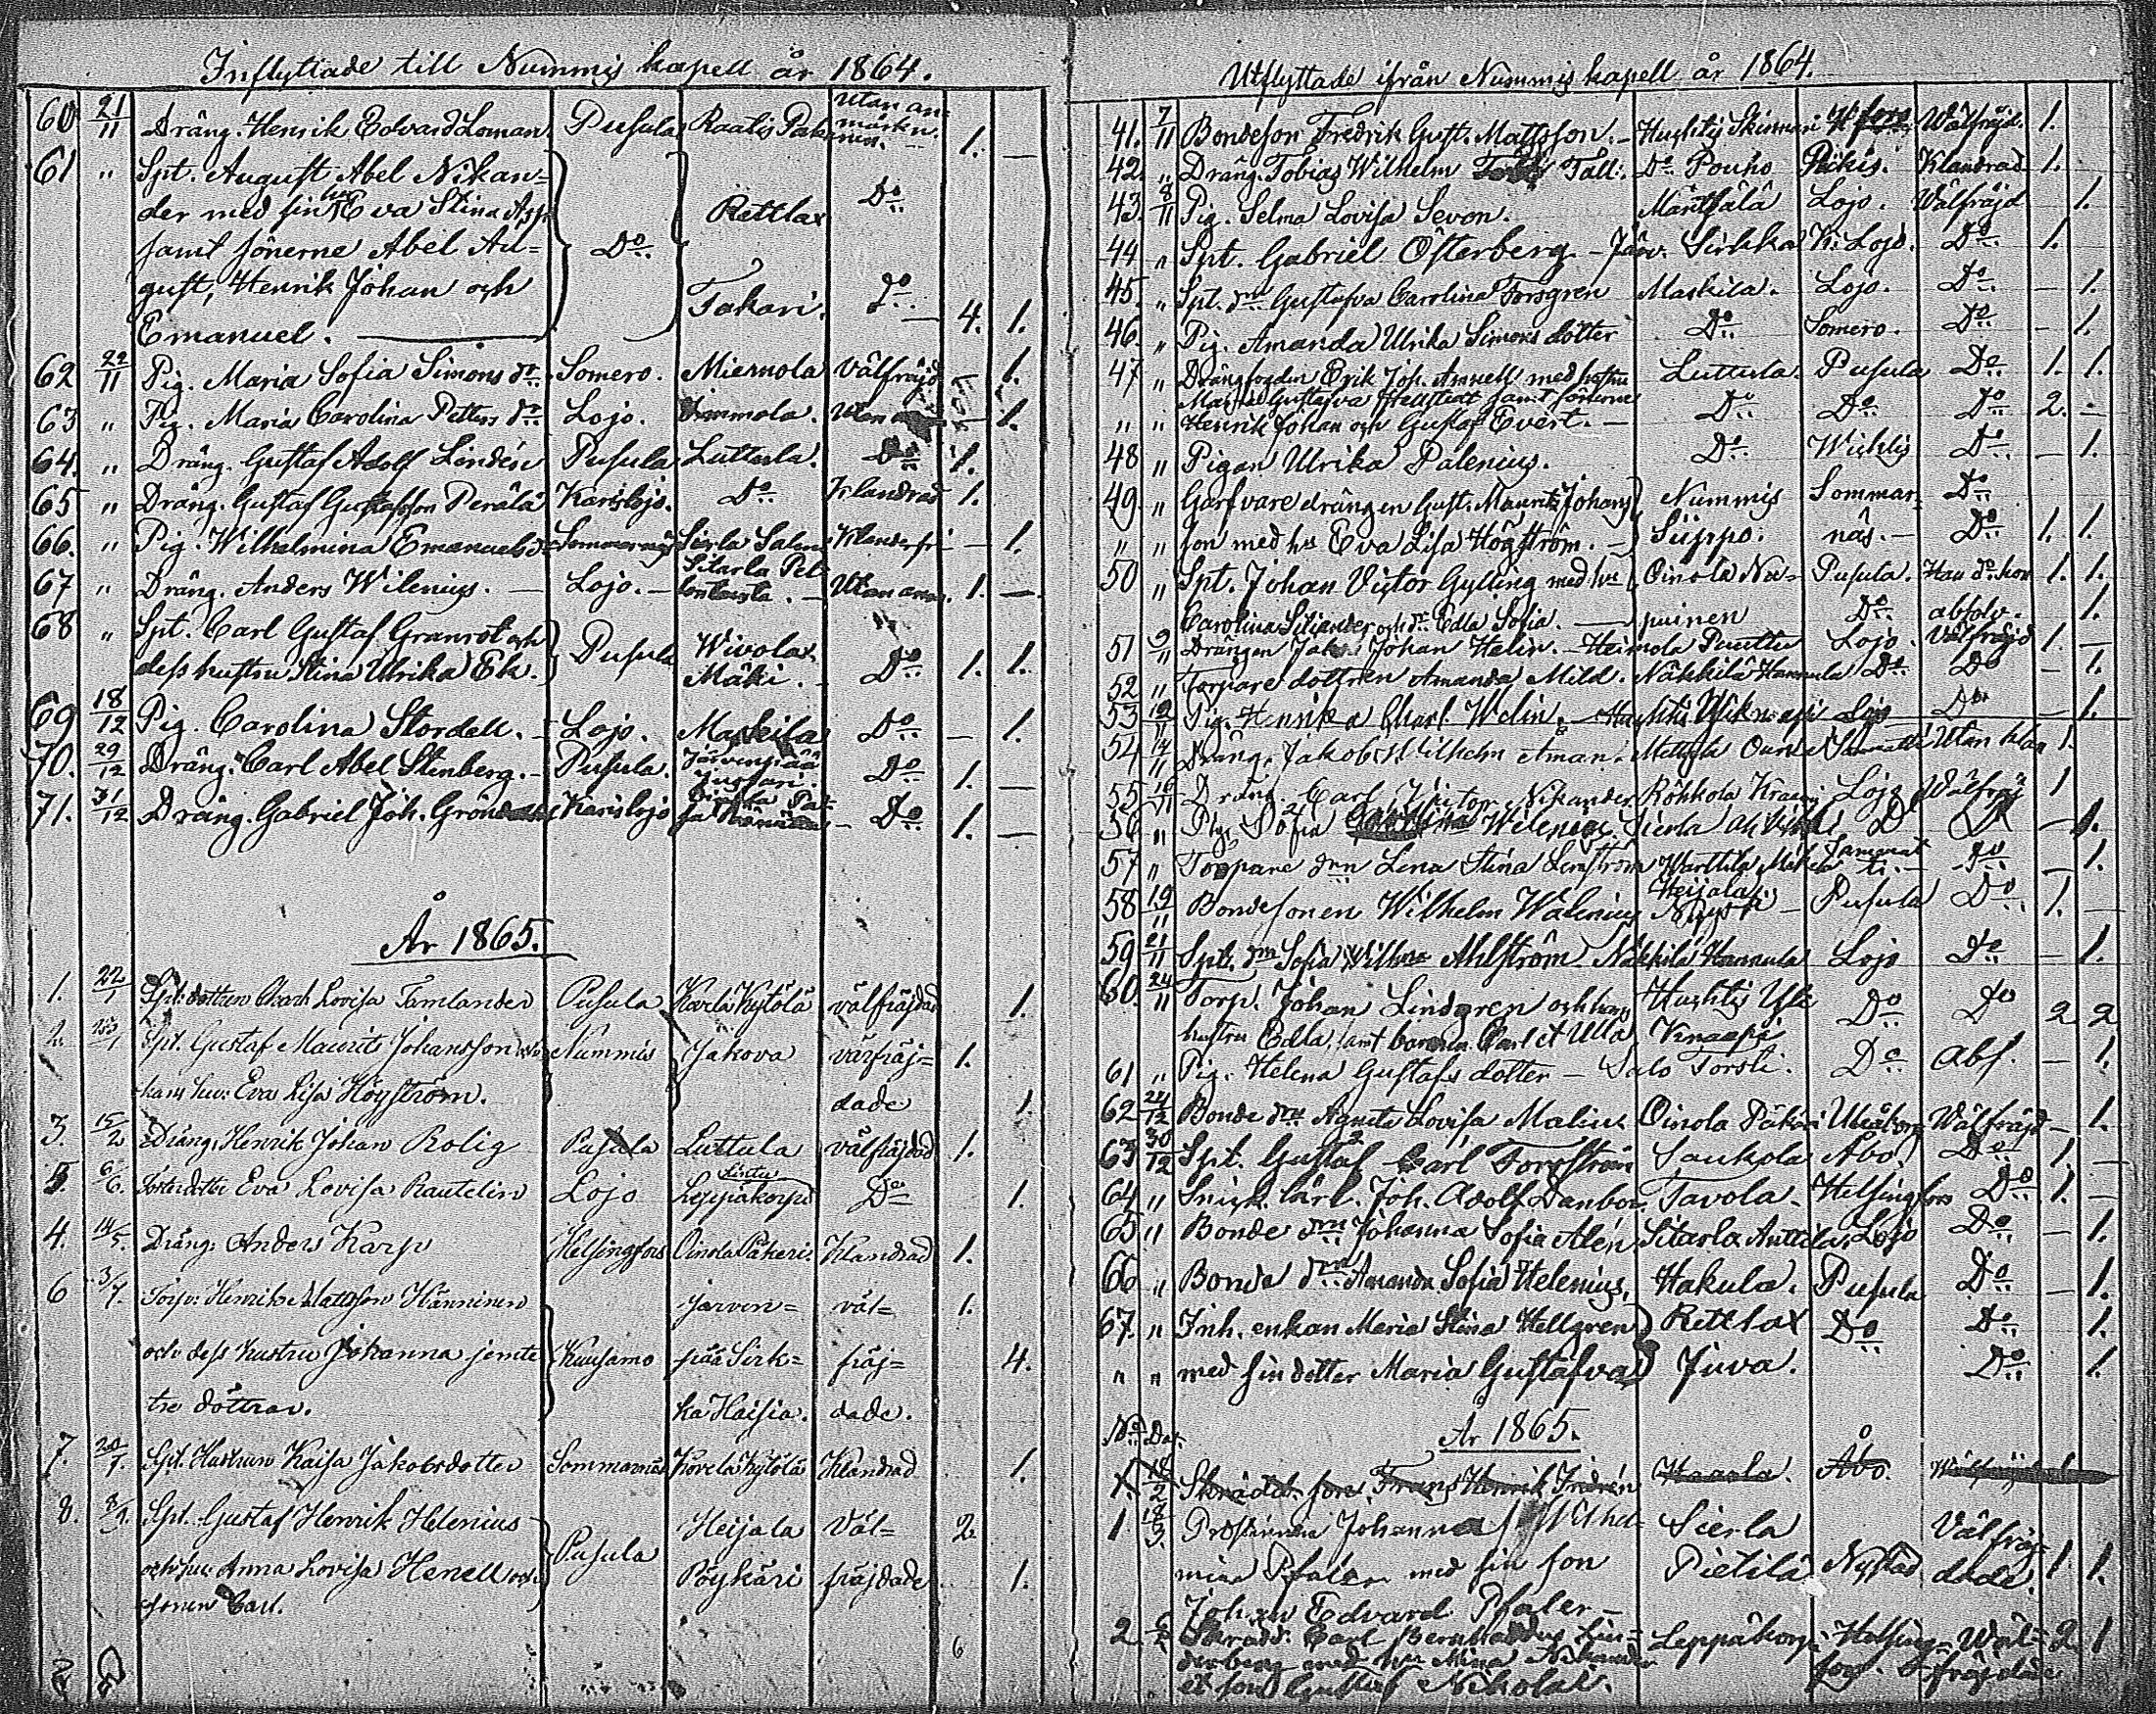 Inflyttade till Nummis kapell år 1864.
60 21/11 Dräng. Henrik Edvard Loman. Pusula Raatis utan an-
märkn. 1. —
61 " Spt. August Abel Nikan-
der med sin hu Eva Stina Asp Rettlax Do
samt sönerne Abel Au- Do
gust, Henrik Johan och Takari. Do
Emanuel. — 4. 1.
62 22/11 Pig. Maria Sofia Simons dr. Somero. Miemola Välfräjd — 1.
63 " Pig. Maria Carolina Petters dr. Lojo. Immola. Utan — 1.
64. " Dräng. Gustaf Adolf Lindén Pusula Luttula. Do 1.
65 " Dräng. Gustaf Gustafsson Perälä Karislojo. Do Klandrad 1.
66. " Pig. Wilhelmina Emanuels d. Sommarnäs Sierla Salmi Klanderfri — 1.
67 " Dräng. Anders Wilenius. — Lojo. — Sitarla Utan anm. 1. —
68 " Spt. Carl Gustaf Granrot och
dess hustru Stina Ulrika Ek. Pusula Wivola Mäki. Do 1. 1.
69 18/12 Pig. Carolina Stordell. — Lojo. Maskila Do — 1.
70. 29/12 Dräng. Carl Abel Stenberg. — Pusula. Järvenpää Jussari. Do 1. —
71. 31/12 Dräng. Gabriel Joh. Grön Karislojo Do 1. —
År 1865.
1. 22/1 Spt. dottren Charl. Lovisa Tamlander Pusula Karla Kytölä välfräjdad 1.
2. 23/1 Spt. Gustaf Maurits Johansson och Nummis Jakova välfräj= 1.
hans hu: Eva Lisa Högström. dade 1.
3. 15/2 Dräng. Henrik Johan Rolig Pusula Luttula välfräjdad 1.
5. 6/6. Eva Lovisa Rautelin Lojo Lintu Leppäkorpi Do 1.
4. 14/5. Dräng. Anders Karp Helsingfors Oinola Päkeri. Klandrad 1.
6 3/7. Torp: Henrik Mattsson Hänninen Järven= väl= 1.
och dess hustru Johanna jemte Kuusamo pää Sirk= fräj= 4.
tre döttrar. ka Haisia. dade.
7. 20/7. Spt. Hustrun Kaisa Jakobsdotter Sommarnäs Korela Kytölä Klandrad 1.
8. Spt. Gustaf Henrik Helenius Heijala Väl= 2
och hu: Anna Lovisa Henell och Pusula Pöykäri fräjdade 1.
sonen Carl.
6
Utflyttade ifrån Nummis kapell år 1864.
41. 7/11 Bondeson Fredrik Gust. Mattsson. — Huhtis H:fors Wälfräjd. 1.
42. " Dräng. Tobias Wilhelm Fäll. Do Pouho Pikis. Klandrad 1.
43. 8/11 Pig. Selma Lovisa Sevon. Mäntsälä Lojo. Wälfräjd 1.
44 " Spt. Gabriel Österberg. — Järv. Sirkka K. Lojo. Do 1.
45. " Spt. dn Gustafva Carolina Forsgren Maskila. Lojo. Do — 1.
46. " Pig. Amanda Ulrika Simons dotter Do Somero. Do — 1.
47 " Drängfogden Erik Joh. Amnell med hustru Luttula. Pusula Do 1. 1.
Maria Gustafva Hellstedt samt sönerne
" " Henrik Johan och Gustaf Evert. — Do Do Do 2. —
48 " Pigan Ulrika Palenius. Do Wichtis Do — 1.
49. " Garfvare drängen Gust. Maurits Johans Nummis Sommar- Do
" " son med hu Eva Lisa Högström. — Siippo. näs. — Do 1. 1.
50 " Spt. Johan Victor Gylling med hu Oinola Nu- Pusula. 1. 1.
Carolina Siliander och dr Edla Sofia. — puinen Do absolv. 1.
51 9/11 Drängen Jak. Johan Helin. — Heimola Puuttu Lojo. Välfräjd 1. —
52 " Torpare dottren Amanda Mild. Näkkilä Hannula Do Do — 1.
53 Pig. Henrika Charl. Welin. — Huhtis Lojo Do — 1.
54 14/11 Dräng. Jakob Wilhelm Åman. Sammatti Utan klan 1.
55 16/11 Dräng. Carl Victor Nikander Röhkola Lojo Wälfräj 1
56 " Pig. Sofia Wilenius Sierla D D — 1.
57 " Torpare drn Lena Stina Lenström Warttila Sammat-
ti. — Do — 1.
58 19/11 Bondesonen Wilhelm Walenius Heijala — Pusula Do 1. —
59 21/11 Spt. dn Sofia Wilhna Ahlström Näkkilä Hannula Lojo Do — 1.
60. 24/11 Torp. Johan Lindgren och hans Huhtis Do Do 2 2
hustru Edla, samt barnen Carl et Ulla Knaapi
61 " Pig. Helena Gustafs dotter — Salo Torsti. Do Abs. — 1.
62 24/12 Bonde drn Agneta Lovisa Malin Oinola Päkäri Uleåborg Wälfräjd — 1.
63 30/12 Spt. Gustaf Carl Forsström Saukola Åbo. Do 1. —
64 " Snick. lärl. Joh. Adolf Danbor. Tavola. Helsingfors Do 1. —
65 " Bonde drn Johanna Sofia Alén Sitarla Anttila. Lojo Do — 1.
66 " Bonde drn Amanda Sofia Helenius, Hakula. Pusula Do — 1.
67. " Inh. enkan Maria Stina Hellgren Rettlax Do Do 1.
" " med sin dotter Maria Gustafva Juva. Do 1.
No Dat. År 1865.
1. 18/2 Skrädd. son. Frans Henrik Fredrén Haarla. Åbo.
1 18/3. Prostinnan Johanna Wilhel- Sierla Välfräj-
mina Pfaler med sin son Pietilä Nystad dade. 1 1.
Johan Edvard Pfaler —
2. Skrädd. Carl Bernhardus Lin- Leppäkorpi Helsing- Wäl- 2 1
derberg med hu Mina Nikander fors. fräjdade
et son Gustaf Nikolai.